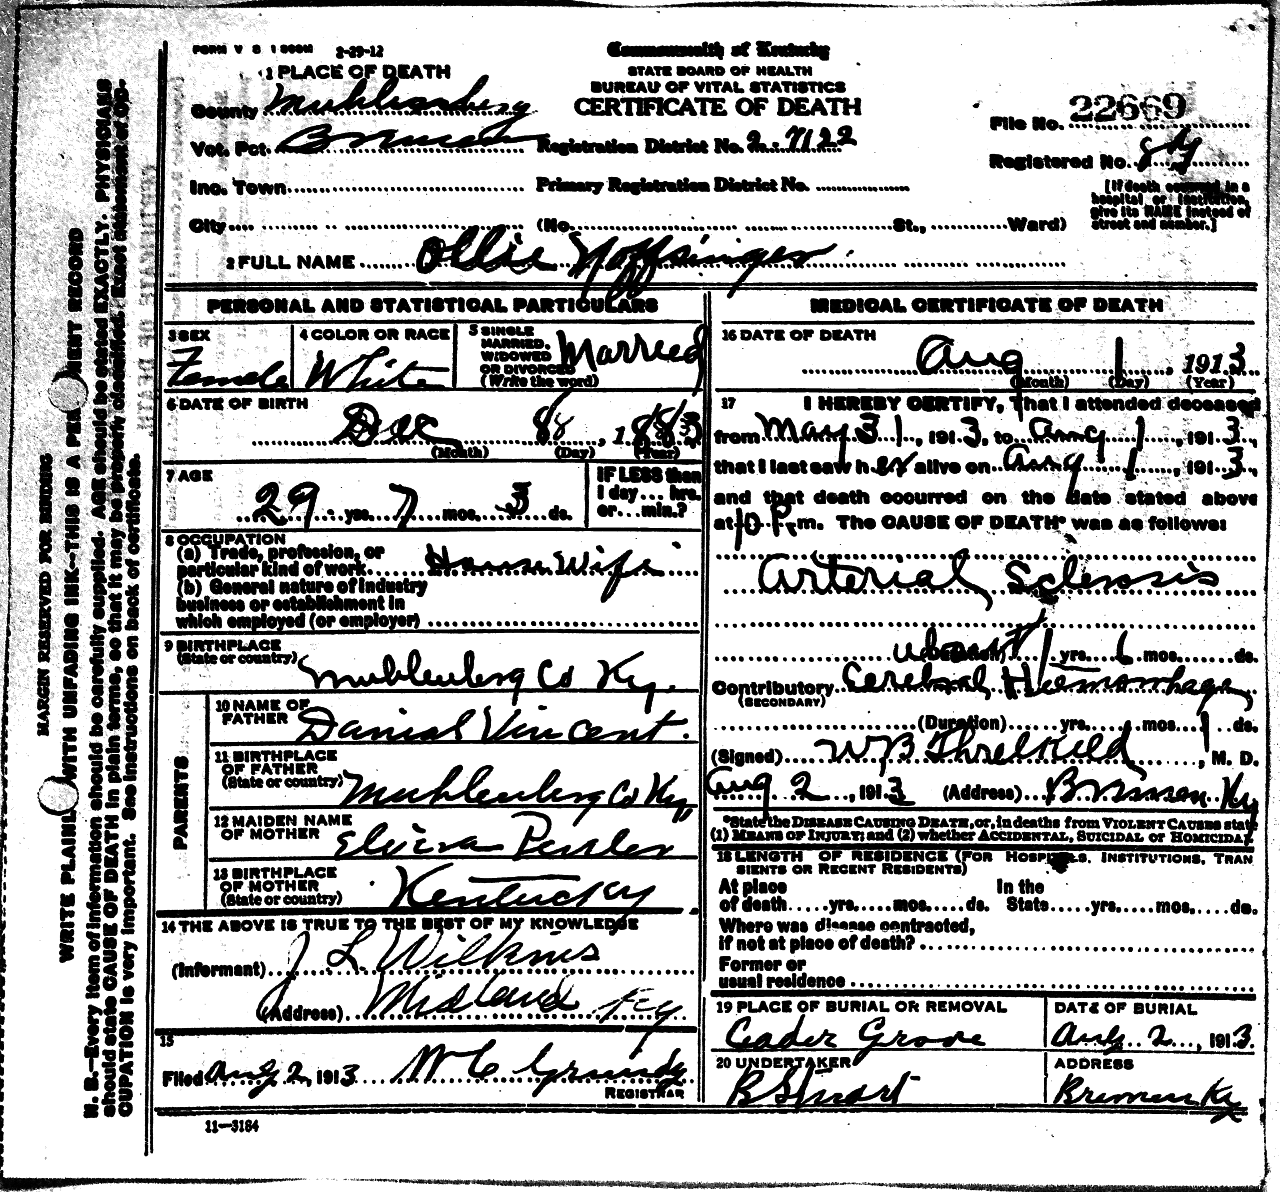 FORM V S 1 500M 2-29-12
Commonwealth of Kentucky
STATE BOARD OF HEALTH
BUREAU OF VITAL STATISTICS
CERTIFICATE OF DEATH
1 PLACE OF DEATH
County Muhlenberg
Vot. Pct. Bremen Registration District No. 2-7122
Inc. Town Primary Registration District No.
City (No. St., Ward)
File No. 22669
Registered No.
[If death occurred in a
hospital or institution,
give its NAME instead of
street and number.]
2 FULL NAME Ollie Noffsinger
PERSONAL AND STATISTICAL PARTICULARS
3 SEX
Female
4 COLOR OR RACE
White
5 SINGLE
MARRIED,
WIDOWED
OR DIVORCED
(Write the word)
Married
6 DATE OF BIRTH
Dec , 1883
(Month) (Day) (Year)
7 AGE
29 yrs. 7 mos. 3 ds.
IF LESS than
1 day... hrs.
or...min.?
8 OCCUPATION
(a) Trade, profession, or
particular kind of work House Wife
(b) General nature of industry
business or establishment in
which employed (or employer)
9 BIRTHPLACE
(State or country)
Muhlenberg Co Ky.
PARENTS
10 NAME OF
FATHER
Danial Vincent.
11 BIRTHPLACE
OF FATHER
(State or country)
Muhlenberg Co Ky
12 MAIDEN NAME
OF MOTHER
13 BIRTHPLACE
OF MOTHER
(State or country)
Kentucky
14 THE ABOVE IS TRUE TO THE BEST OF MY KNOWLEDGE
(Informant) J L Wilkins
(Address) Midland Ky
15
Filed Aug 2, 1913 W C Grundy
REGISTRAR
11—3184
MEDICAL CERTIFICATE OF DEATH
16 DATE OF DEATH
Aug 1, 1913
(Month) (Day) (Year)
17 I HEREBY CERTIFY, That I attended deceased
from May 31, 1913, to Aug 1, 1913,
that I last saw her alive on Aug 1, 1913,
and that death occurred on the date stated above
at 10 P. m. The CAUSE OF DEATH* was as follows:
Arterial Sclerosis
about (Duration) 1 yrs. 6 mos. ds.
Contributory Cerebral Hemorrhage
(SECONDARY)
(Duration) yrs. mos. 1 ds.
(Signed) W B Threlkeld, M. D.
Aug 2, 1913 (Address) Bremen Ky
*State the DISEASE CAUSING DEATH, or, in deaths from VIOLENT CAUSES state
(1) MEANS OF INJURY; and (2) whether ACCIDENTAL, SUICIDAL OR HOMICIDAL.
18 LENGTH OF RESIDENCE (FOR HOSPITALS, INSTITUTIONS, TRAN
SIENTS OR RECENT RESIDENTS)
At place In the
of death yrs. mos. ds. State yrs. mos. ds.
Where was disease contracted,
if not at place of death?
Former or
usual residence
19 PLACE OF BURIAL OR REMOVAL
Cader Grove
DATE OF BURIAL
Aug. 2, 1913.
20 UNDERTAKER
B Stuart
ADDRESS
Bremen Ky
MARGIN RESERVED FOR BINDING
WRITE PLAINLY WITH UNFADING INK—THIS IS A PERMANENT RECORD
N. B.—Every item of information should be carefully supplied. AGE should be stated EXACTLY. PHYSICIANS
should state CAUSE OF DEATH in plain terms, so that it may be properly classified. Exact statement of OC-
CUPATION is very important. See instructions on back of certificate.